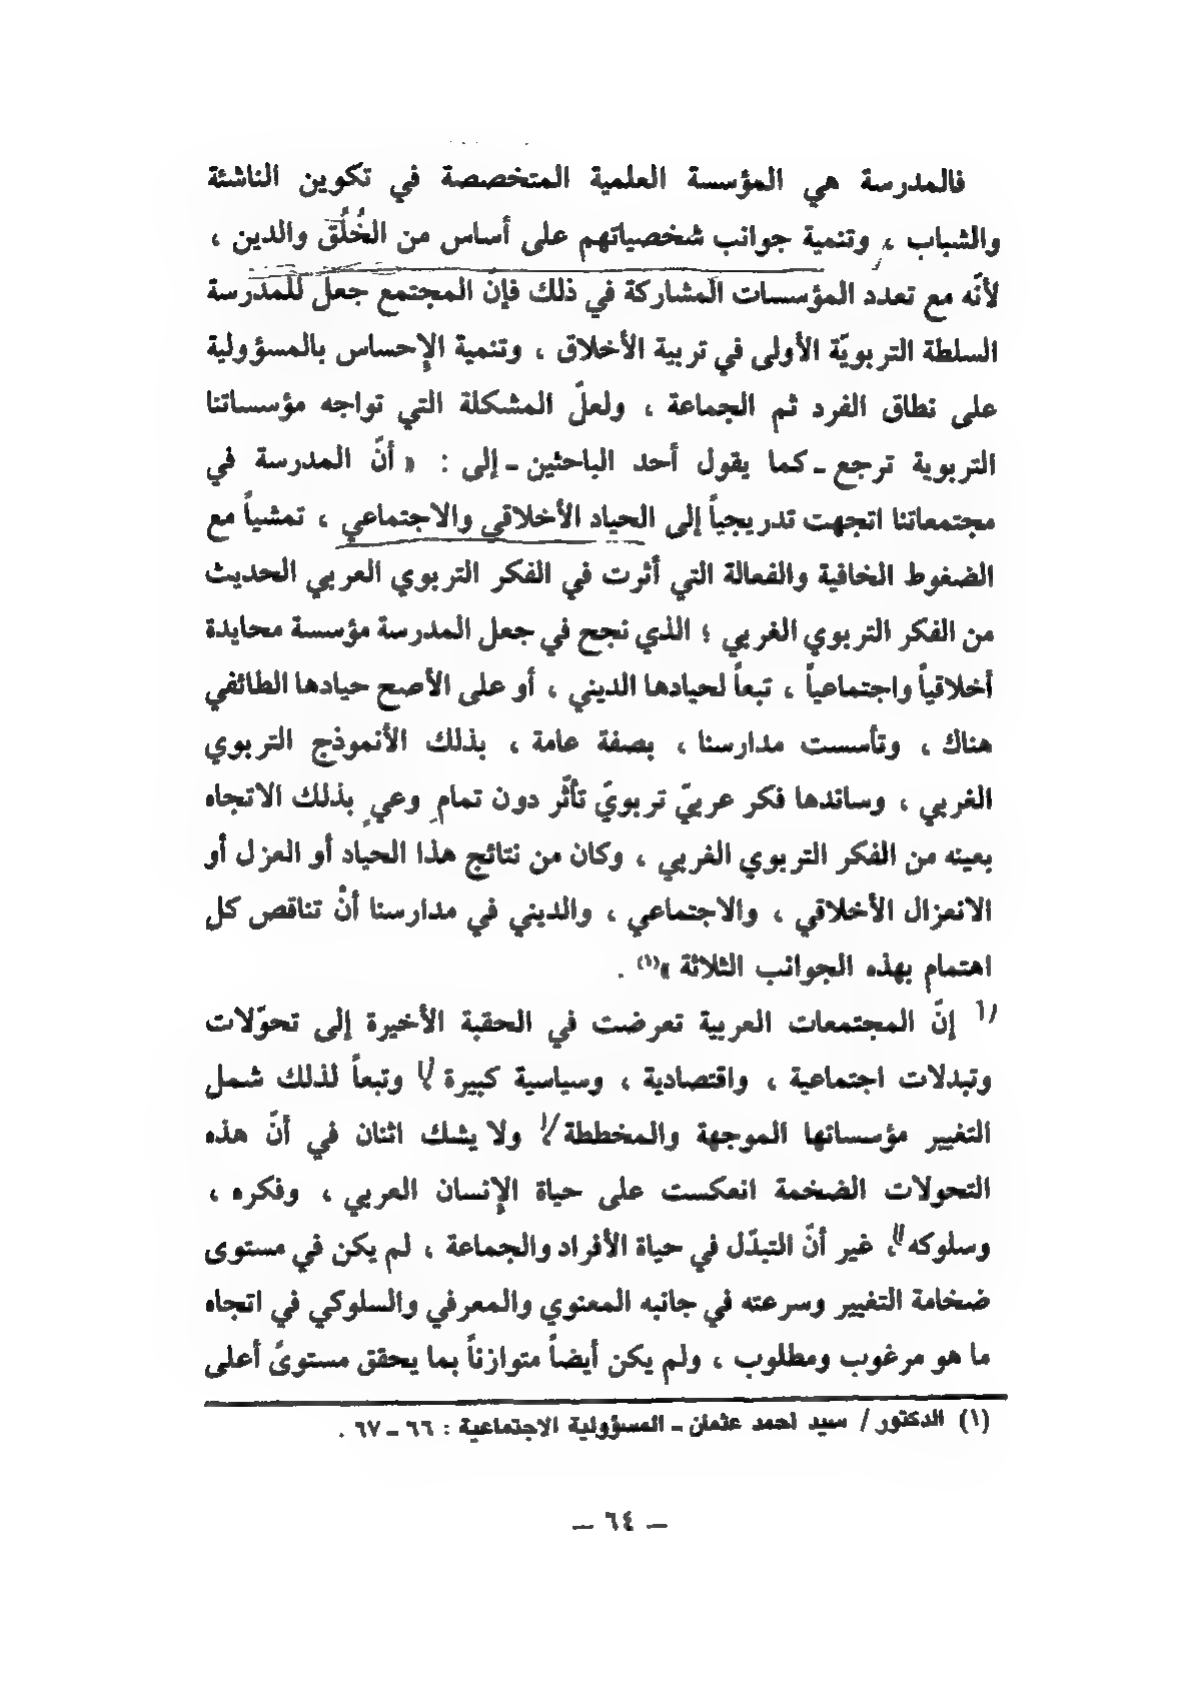 فالمدرسة هي المؤسسة العلمية المتخصصة في تكوين الناشئة
والشباب ، وتنمية جوانب شخصياتهم على أساس من الخُلُق والدين ،
لأنّه مع تعدد المؤسسات المشاركة في ذلك فإنّ المجتمع جعل للمدرسة
السلطة التربويّة الأولى في تربية الأخلاق ، وتنمية الإحساس بالمسؤولية
على نطاق الفرد ثم الجماعة ، ولعلّ المشكلة التي تواجه مؤسساتنا
التربوية ترجع ـ كما يقول أحد الباحثين ـ إلى : « أنّ المدرسة في
مجتمعاتنا اتجهت تدريجياً إلى الحياد الأخلاقي والاجتماعي ، تمشياً مع
الضغوط الخافية والفعالة التي أثرت في الفكر التربوي العربي الحديث
من الفكر التربوي الغربي ؛ الذي نجح في جعل المدرسة مؤسسة محايدة
أخلاقياً واجتماعياً ، تبعاً لحيادها الديني ، أو على الأصح حيادها الطائفي
هناك ، وتأسست مدارسنا ، بصفة عامة ، بذلك الأنموذج التربوي
الغربي ، وساندها فكر عربيّ تربويّ تأثّر دون تمامِ وعيٍ بذلك الاتجاه
بعينه من الفكر التربوي الغربي ، وكان من نتائج هذا الحياد أو العزل أو
الانعزال الأخلاقي ، والاجتماعي ، والديني في مدارسنا أنْ تناقص كل
اهتمام بهذه الجوانب الثلاثة »(١) .
إنّ المجتمعات العربية تعرضت في الحقبة الأخيرة إلى تحوّلات
وتبدلات اجتماعية ، واقتصادية ، وسياسية كبيرة ، وتبعاً لذلك شمل
التغيير مؤسساتها الموجهة والمخططة ، ولا يشك اثنان في أنّ هذه
التحولات الضخمة انعكست على حياة الإنسان العربي ، وفكره ،
وسلوكه ، غير أنّ التبدّل في حياة الأفراد والجماعة ، لم يكن في مستوى
ضخامة التغيير وسرعته في جانبه المعنوي والمعرفي والسلوكي في اتجاه
ما هو مرغوب ومطلوب ، ولم يكن أيضاً متوازناً بما يحقق مستوىً أعلى
(١) الدكتور / سيد أحمد عثمان ـ المسؤولية الاجتماعية : ٦٦ ـ ٦٧ .
ـ ٦٤ ـ